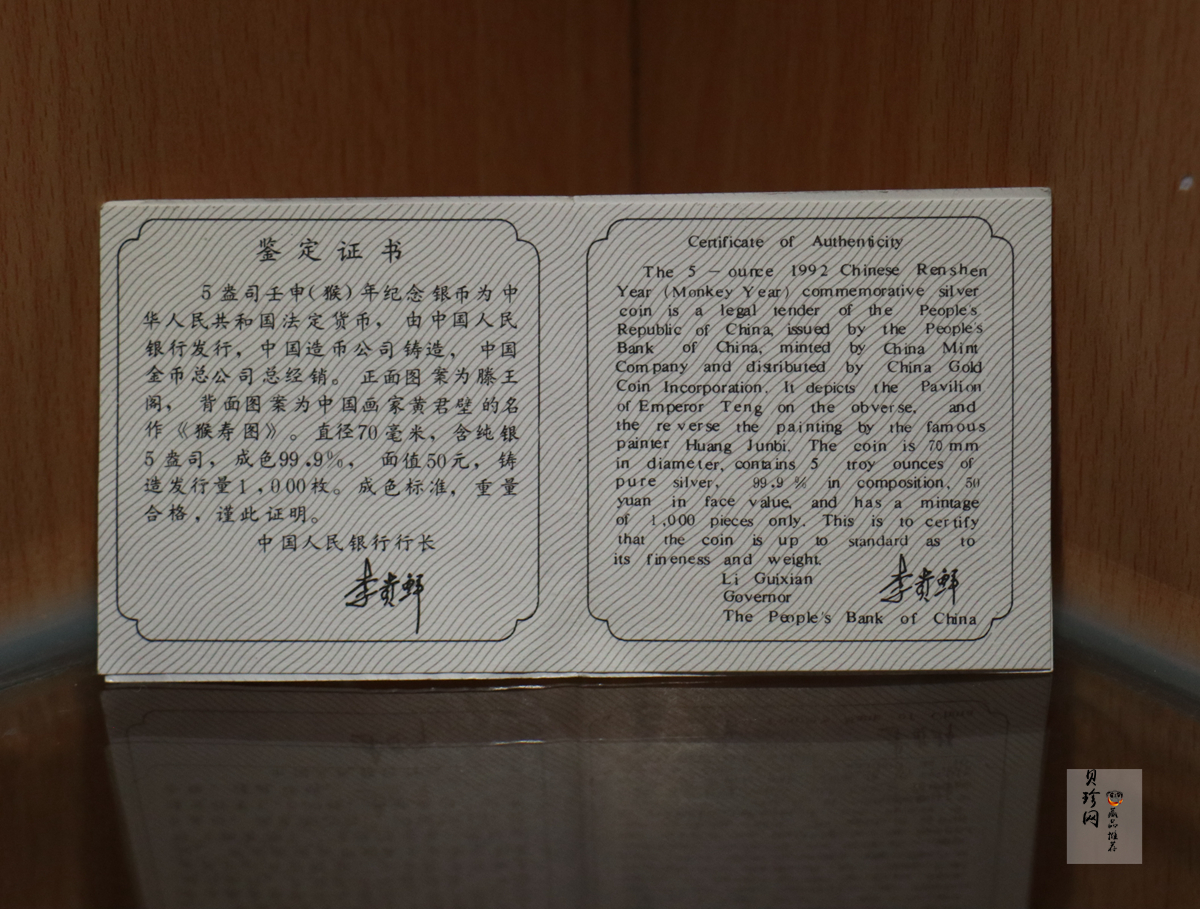 鉴定证书
5盎司壬申(猴)年纪念银币为中
华人民共和国法定货币，由中国人民
银行发行，中国造币公司铸造，中国
金币总公司总经销。正面图案为滕王
阁，背面图案为中国画家黄君壁的名
作《猴寿图》。直径70毫米，含纯银
5盎司，成色99.9%，面值50元，铸
造发行量1,000枚。成色标准，重量
合格，谨此证明。
中国人民银行行长
李贵鲜
Certificate of Authenticity
The 5-ounce 1992 Chinese Renshen
Year (Monkey Year) commemorative silver
coin is a legal tender of the People's
Republic of China, issued by the People's
Bank of China, minted by China Mint
Company and distributed by China Gold
Coin Incorporation. It depicts the Pavilion
of Emperor Teng on the obverse, and
the reverse the painting by the famous
painter Huang Junbi. The coin is 70 mm
in diameter, contains 5 troy ounces of
pure silver, 99.9 % in composition, 50
yuan in face value, and has a mintage
of 1,000 pieces only. This is to certify
that the coin is up to standard as to
its fineness and weight.
李贵鲜
Li Guixian
Governor
The People's Bank of China
贝珍网
藏品推荐